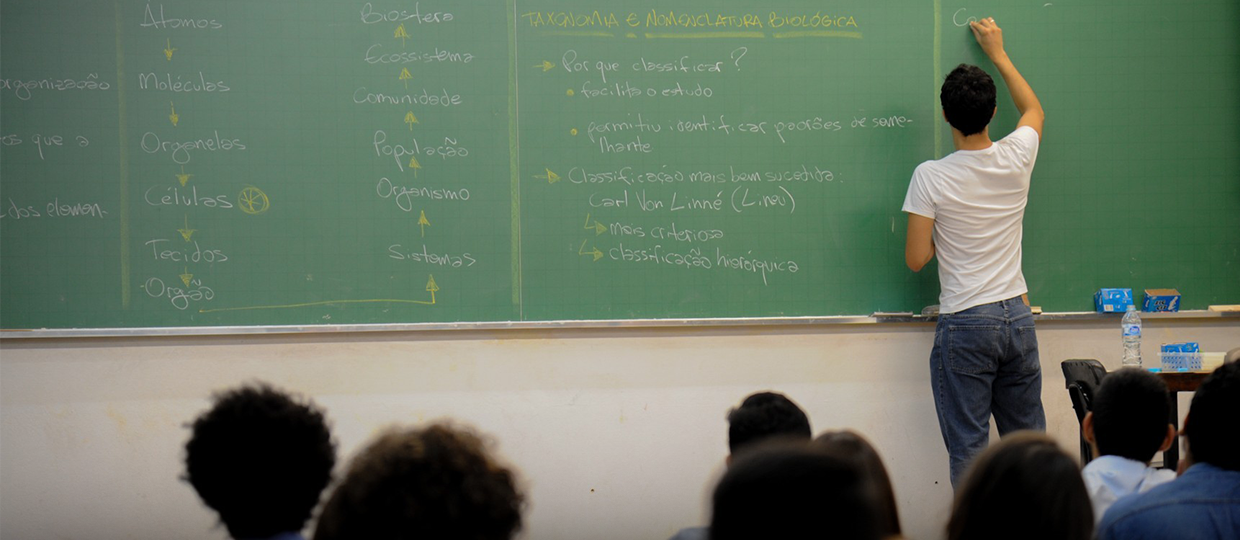 organização
os que a
dos elemen-
Átomos
Moléculas
Organelas
Células
Tecidos
Órgão
Biosfera
Ecossistema
Comunidade
População
Organismo
Sistemas
TAXONOMIA E NOMENCLATURA BIOLÓGICA
Por que classificar?
facilita o estudo
permitiu identificar padrões de seme-
lhante
Classificação mais bem sucedida:
Carl Von Linné (Lineu)
mais criteriosa
classificação hierárquica